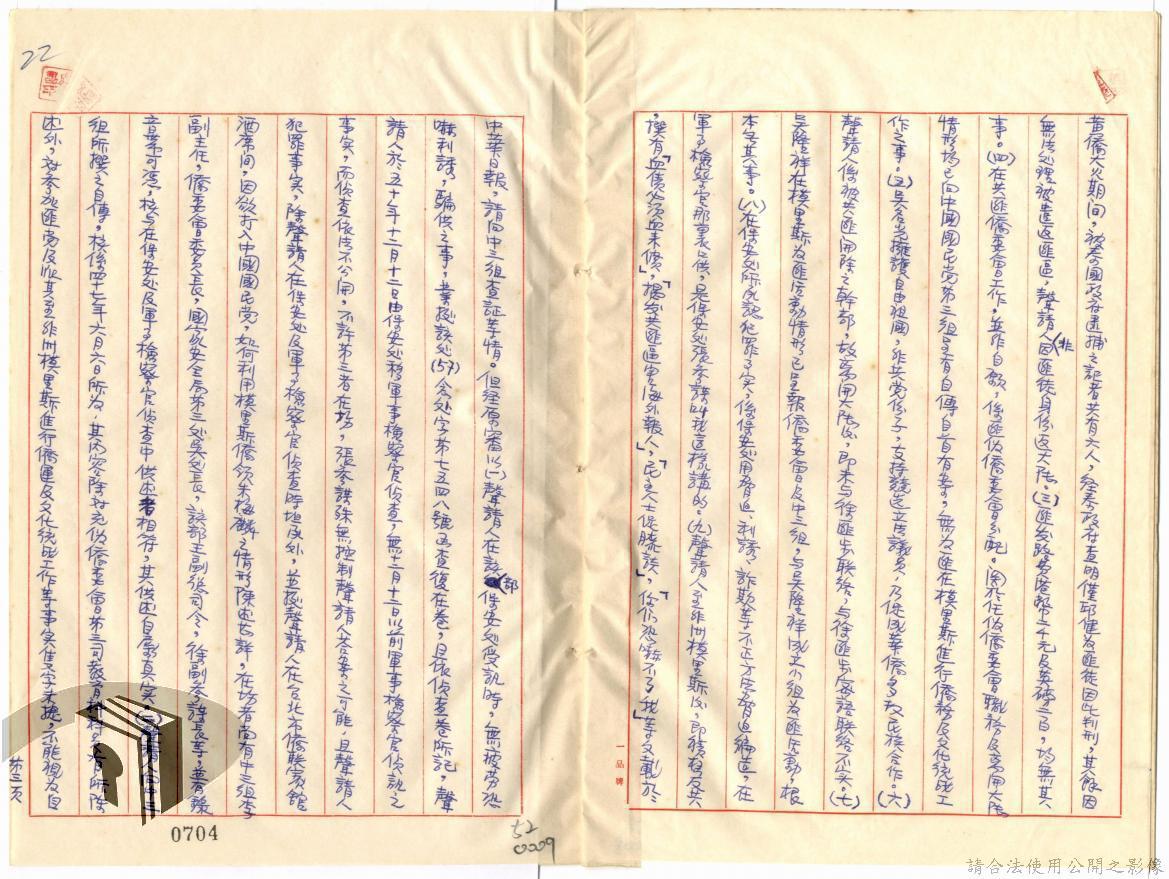 黃僑大火期間，被泰國政府逮捕之記者共有六人，經泰政府查明僅邱健為匪徒因此判刑，其餘因
無法處理被遣返匪區，聲請人非因匪徒身份返大陸。(三)匪發路費港幣二千元及英磅三百，均無其
事。(四)在共匪僑委會工作，並非自願，係匪偽僑委會分配。
情形均已向中國國民党第三組呈有自傳自首有案。無為匪在模里斯進行僑務及文化統戰工
作之事。(五)吳谷光擁護自由祖國，非共党份子，支持競選立法議員，乃促成華僑多及民族合作。(六)
聲請人係被共匪開除之幹部，故离開大陸後，即未与徐匪步聯絡，
吳隆祥在模里斯為匪活動情形已呈報僑委會及中三組，与吳隆祥成立小組為匪活動，根
本無其事。(八)在保安处所承認他罪事实，係保安处用脅迫、利誘、詐欺等不正方法脅迫編造，在
軍事檢察官那裏之供，是保安处張參謀叫我這樣講的。(九)聲請人到非洲模里斯後，即積極反共
，撰有「血債必須血來償」，「民主人士保曉談」，「你們恐嚇不了我」等文載於
中華日報，請向中三組查証等情。但經原審以(一)聲請人在該部保安处受訊時，無疲勞恐
嚇利誘，騙供之事，業據該处(57)念处字第七五四八號函查復在卷，且依偵查卷所記，聲
請人於五十年十二月十二日由保安处移軍事檢察官偵查，無十二月十二日以前軍事檢察官偵訊之
事实，而偵查依法不公開，不許第三者在場，張參謀殊無控制聲請人答案之可能，且聲請人
犯罪事实，除聲請人在保安处及軍事檢察官偵查時坦承外，並據聲請人在台北市僑聯賓館
酒席间，因欲打入中國國民党，如何利用模里斯僑領朱梅麟之情形陳述甚詳，在場者尚有中三組李
副主任，僑委會委員長，國家安全局第三处吳处長，該部王副総司令，徐副參謀長等，並有錄
音帶可憑，核与在保安处及軍事檢察官偵查中供述者相符，其供述自屬真实。(二)聲請人向中三
組所撰之自傳，核係四十七年六月六日所為，其內容除對充偽僑委會第三司教育科科員有所陳
述外，對參加匪党及派其至非洲模里斯進行僑運及文化統战工作等事实隻字未提，不能視為自
第三頁
22
一品牌
0704
52
0009
請合法使用公開之影像